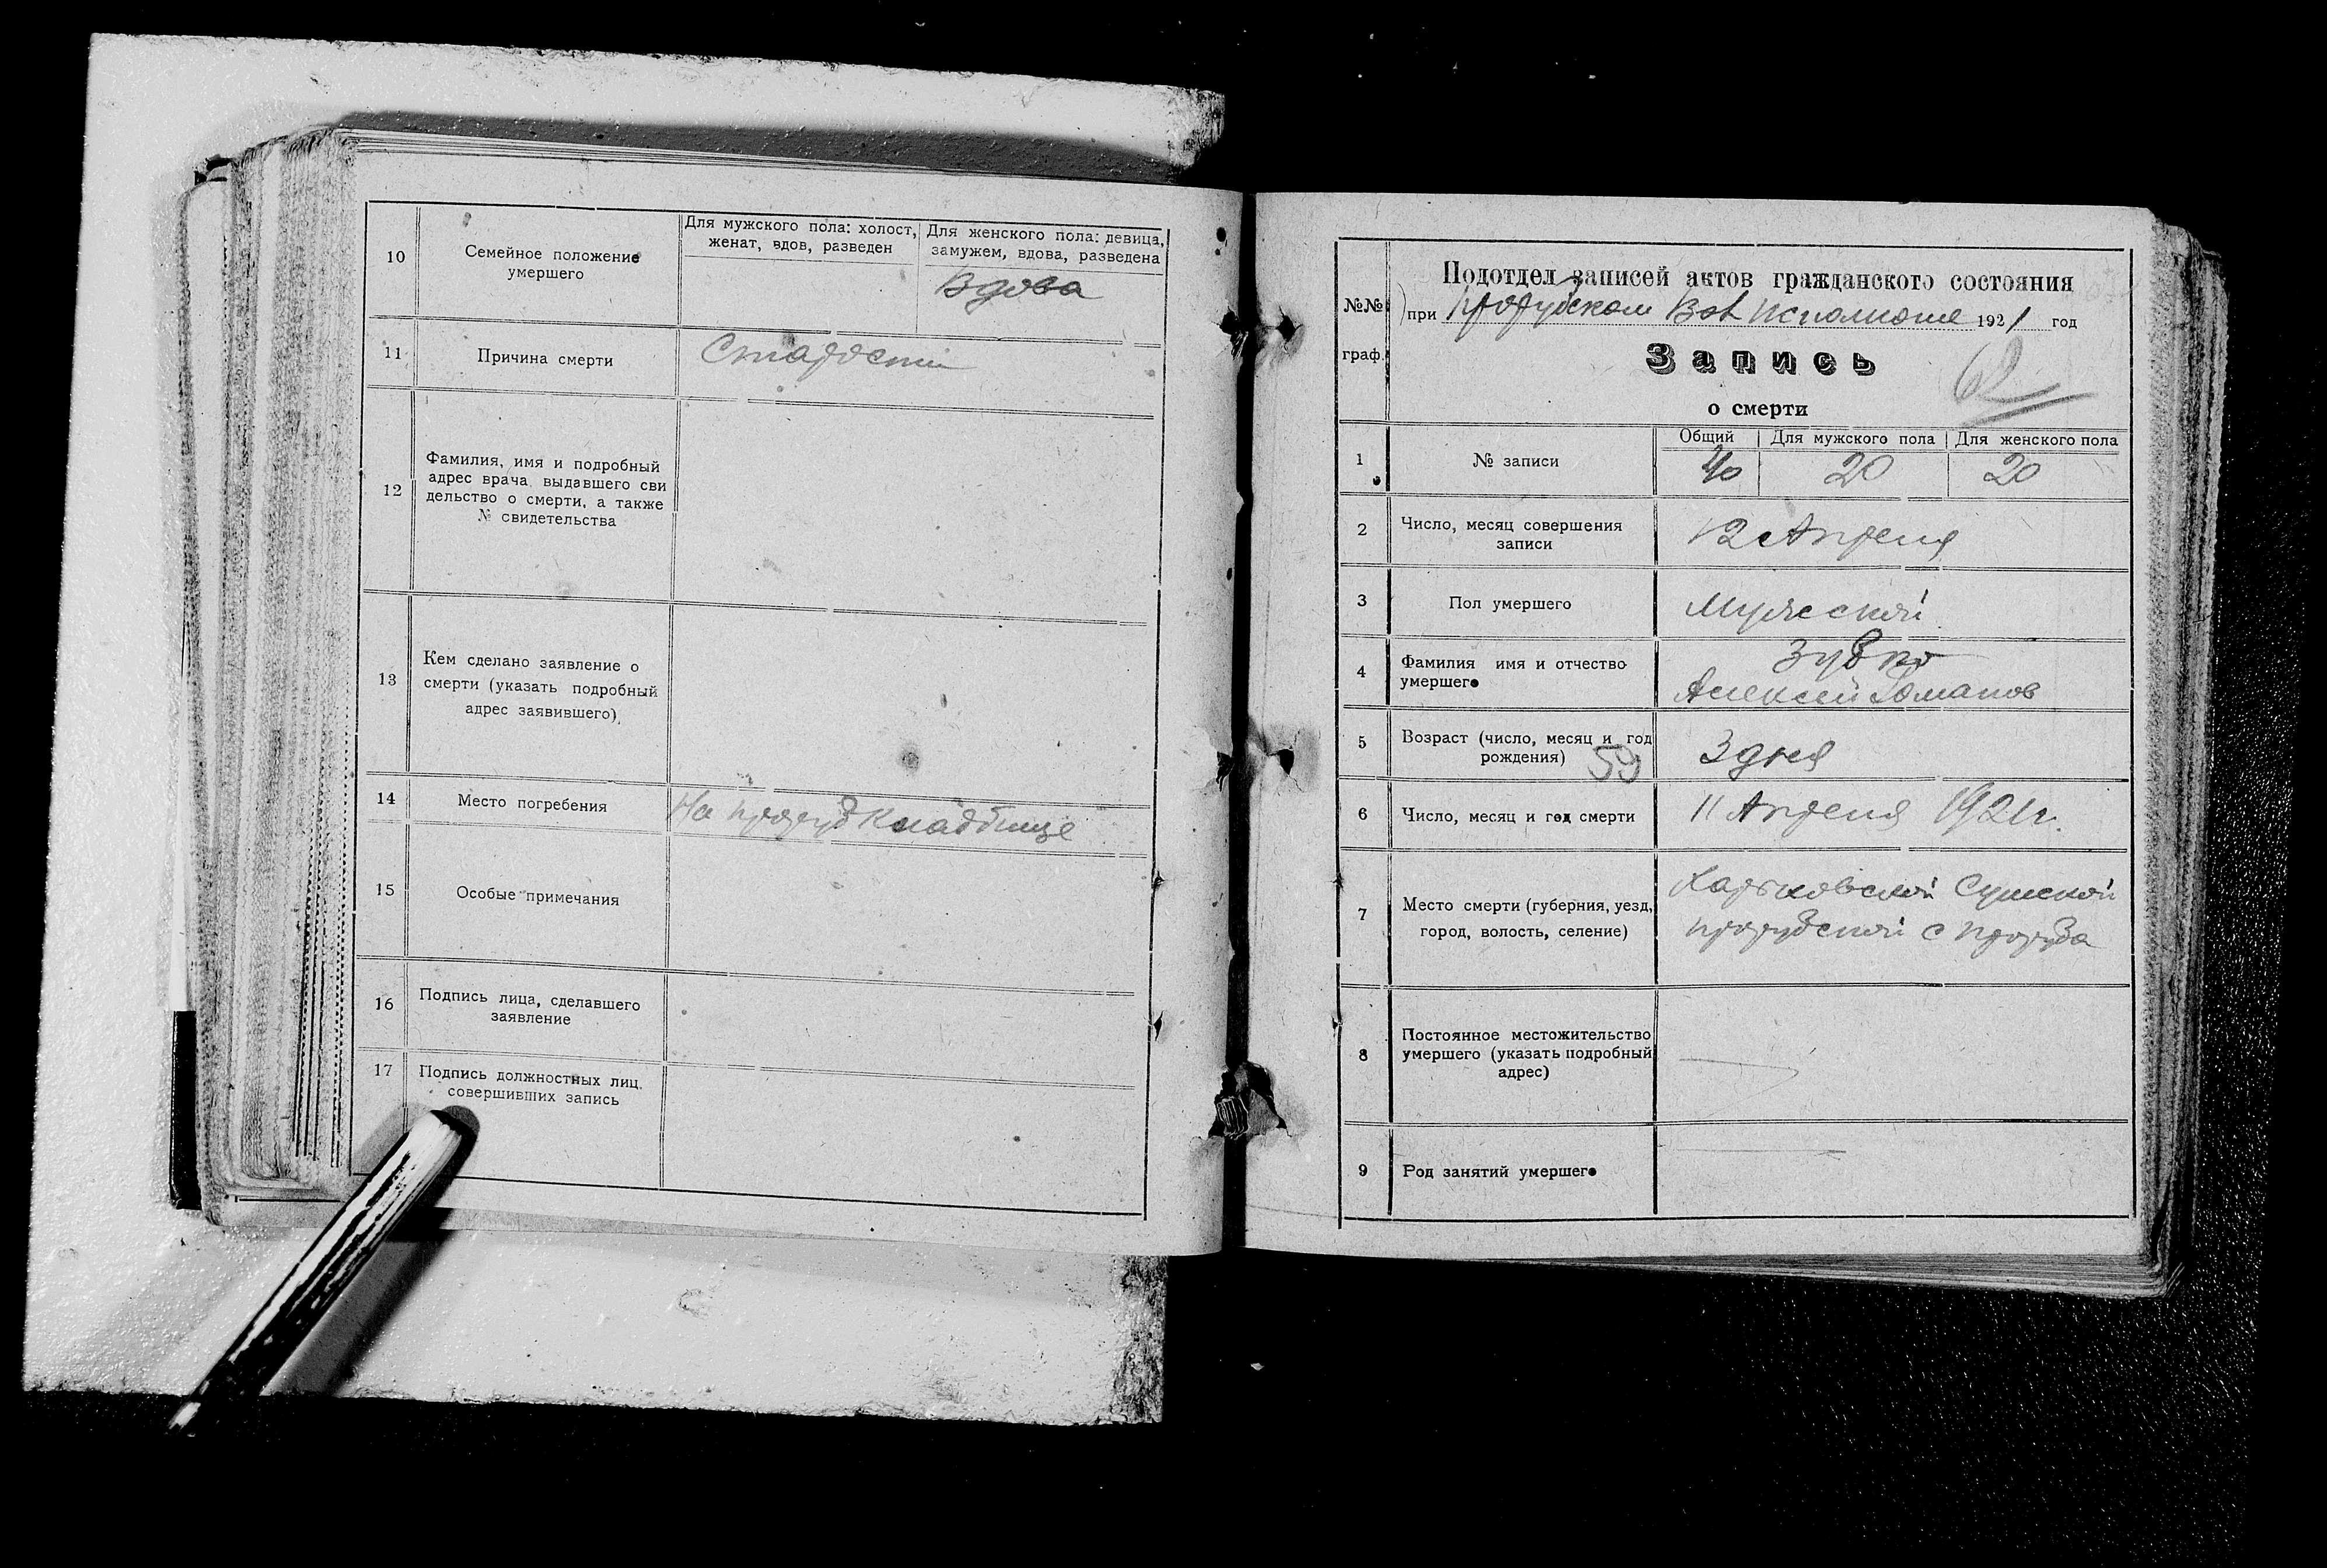 10
Семейное положение
умершего
Для мужского пола: холост,
женат, вдов, разведен
Для женского пола: девица,
замужем, вдова, разведена
Вдова
11
Причина смерти
Старости
12
Фамилия, имя и подробный
адрес врача выдавшего сви
дельство о смерти, а также
№ свидетельства
13
Кем сделано заявление о
смерти (указать подробный
адрес заявившего)
14
Место погребения
На проруб кладбище
15
Особые примечания
16
Подпись лица, сделавшего
заявление
17
Подпись должностных лиц,
совершивших запись
№№
граф.
Подотдел записей актов гражданского состояния
при Прорубском Вол Исполкоме 1921 год
Запись
62
о смерти
1
№ записи
Общий
Для мужского пола
Для женского пола
40
20
20
2
Число, месяц совершения
записи
12 Апреля
3
Пол умершего
Мужской
4
Фамилия имя и отчество
умершего
Зубко
Алексей Романов
5
Возраст (число, месяц и год
рождения)
59
3 дня
6
Число, месяц и год смерти
11 Апреля 1921 г.
7
Место смерти (губерния, уезд,
город, волость, селение)
Харьковской Сумской
прорубской с Проруба
8
Постоянное местожительство
умершего (указать подробный
адрес)
9
Род занятий умершего